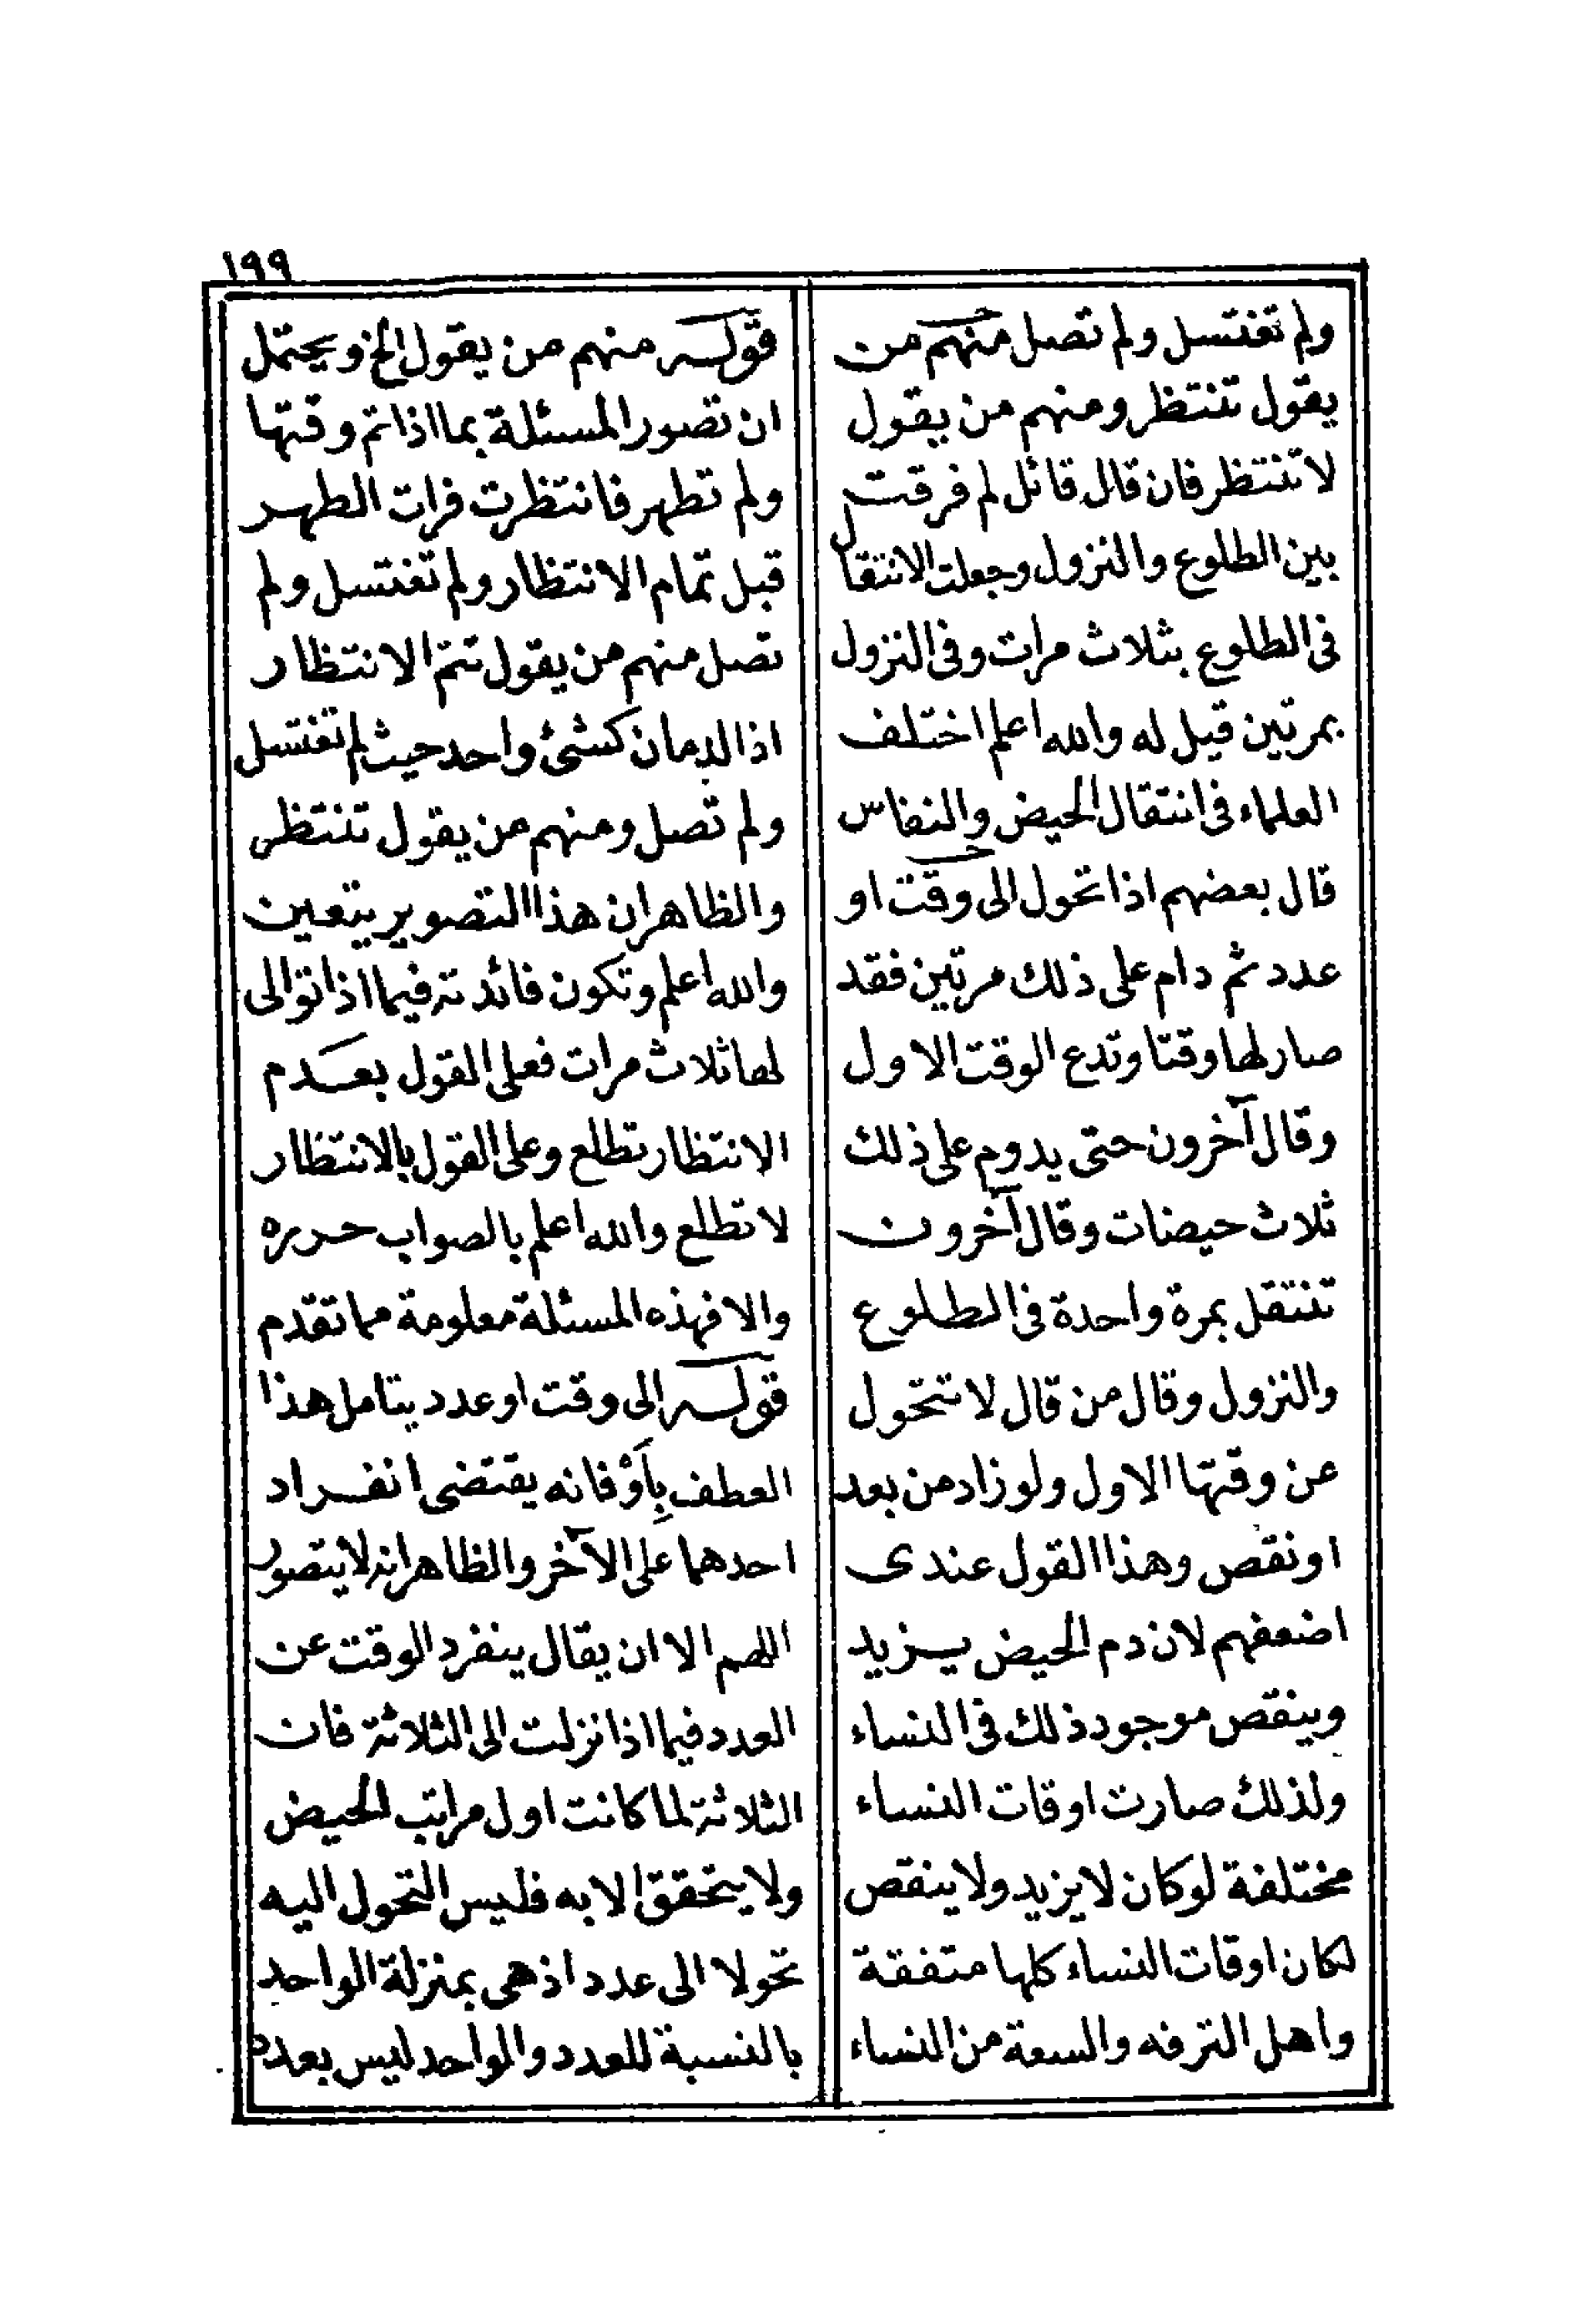 ١٩٩
ولم تغتسل ولم تصل منهم من
يقول تنتظر ومنهم من يقول
لا تنتظر فان قال قائل لم فرقت
بين الطلوع والنزول وجعلت الانتقال
فى الطلوع بثلاث مرات وفى النزول
بمرتين قيل له والله اعلم اختلف
العلماء فى انتقال الحيض والنفاس
قال بعضهم اذا تحول الى وقت او
عدد ثم دام على ذلك مرتين فقد
صار لها وقتا وتدع الوقت الاول
وقال آخرون حتى يدوم على ذلك
ثلاث حيضات وقال آخرون
تنتقل بمرة واحدة فى الطلوع
والنزول وقال من قال لا تتحول
عن وقتها الاول ولو زاد من بعد
او نقص وهذا القول عندى
اضعفهم لان دم الحيض يزيد
وينقص موجود ذلك فى النساء
ولذلك صارت اوقات النساء
مختلفة لو كان لا يزيد ولا ينقص
لكان اوقات النساء كلها متفقة
واهل الترفه والسعة من النساء
قوله منهم من يقول الخ ويحتمل
ان تصور المسئلة بما اذا تم وقتها
ولم تطهر فانتظرت فرات الطهر
قبل تمام الانتظار ولم تغتسل ولم
تصل منهم من يقول تتم الانتظار
اذا الدمان كشئ واحد حيث لم تغتسل
ولم تصل ومنهم من يقول تنتظر
والظاهر ان هذا التصوير يتعين
والله اعلم وتكون فائدته فيما اذا توالى
لها ثلاث مرات فعلى القول بعدم
الانتظار تطلع وعلى القول بالانتظار
لا تطلع والله اعلم بالصواب حرره
والا فهذه المسئلة معلومة مما تقدم
قوله الى وقت او عدد يتامل هذا
العطف بِأَوْ فانه يقتضى انفراد
احدهما على الآخر والظاهر انه لا يتصور
اللهم الا ان يقال ينفرد الوقت عن
العدد فيما اذا نزلت الى الثلاثة فان
الثلاثة لما كانت اول مراتب الحيض
ولا يتحقق الا به فليس التحول اليه
تحولا الى عدد اذ هى بمنزلة الواحد
بالنسبة للعدد والواحد ليس بعدد